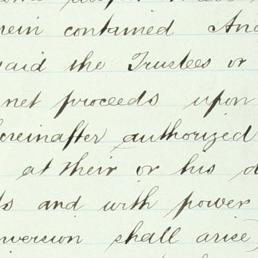 rein contained And
said the Trustees or
net proceeds upon
hereinafter authorized
at their or his d
ds and with power
nversion shall arise)